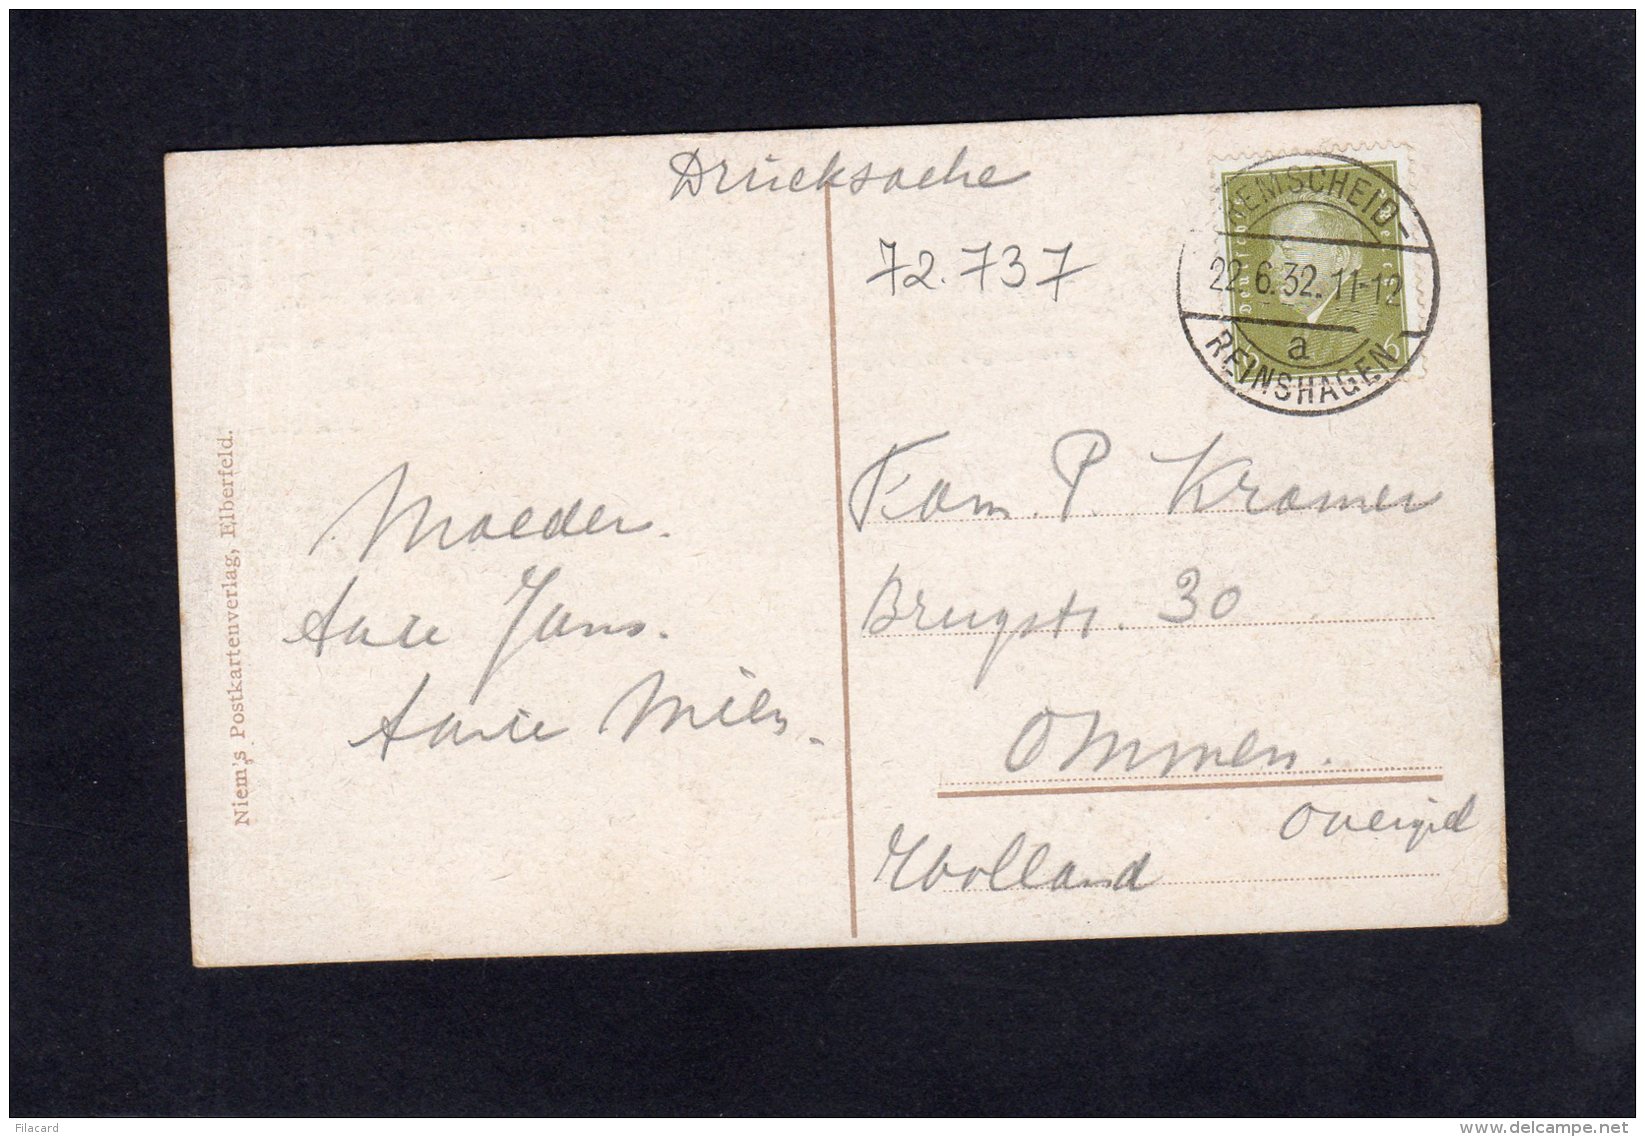 Drucksache
72.737
REMSCHEID-
22.6.32.11-12
a
REINSHAGEN
6
Niem's Postkartenverlag, Elberfeld.
Moeder.
Tante Jans.
Tante Mien.
Fam. P. Kramer
Brugstr. 30
Ommen.
Overijsel
Holland
Filacard
www.delcampe.net